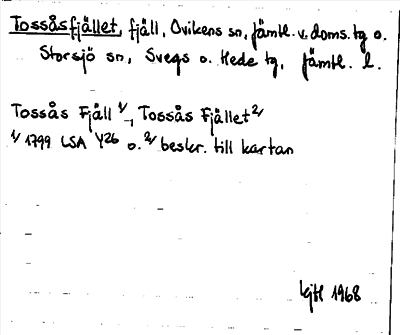 Tossåsfjället, fjäll, Ovikens sn, Jämtl. v. doms. tg o.
Storsjö sn, Svegs o. Hede tg, Jämtl. l.
Tossås Fjäll 1/ –, Tossås Fjället 2/
1/ 1799 LSA Y26 o. 2/ beskr. till kartan
1968